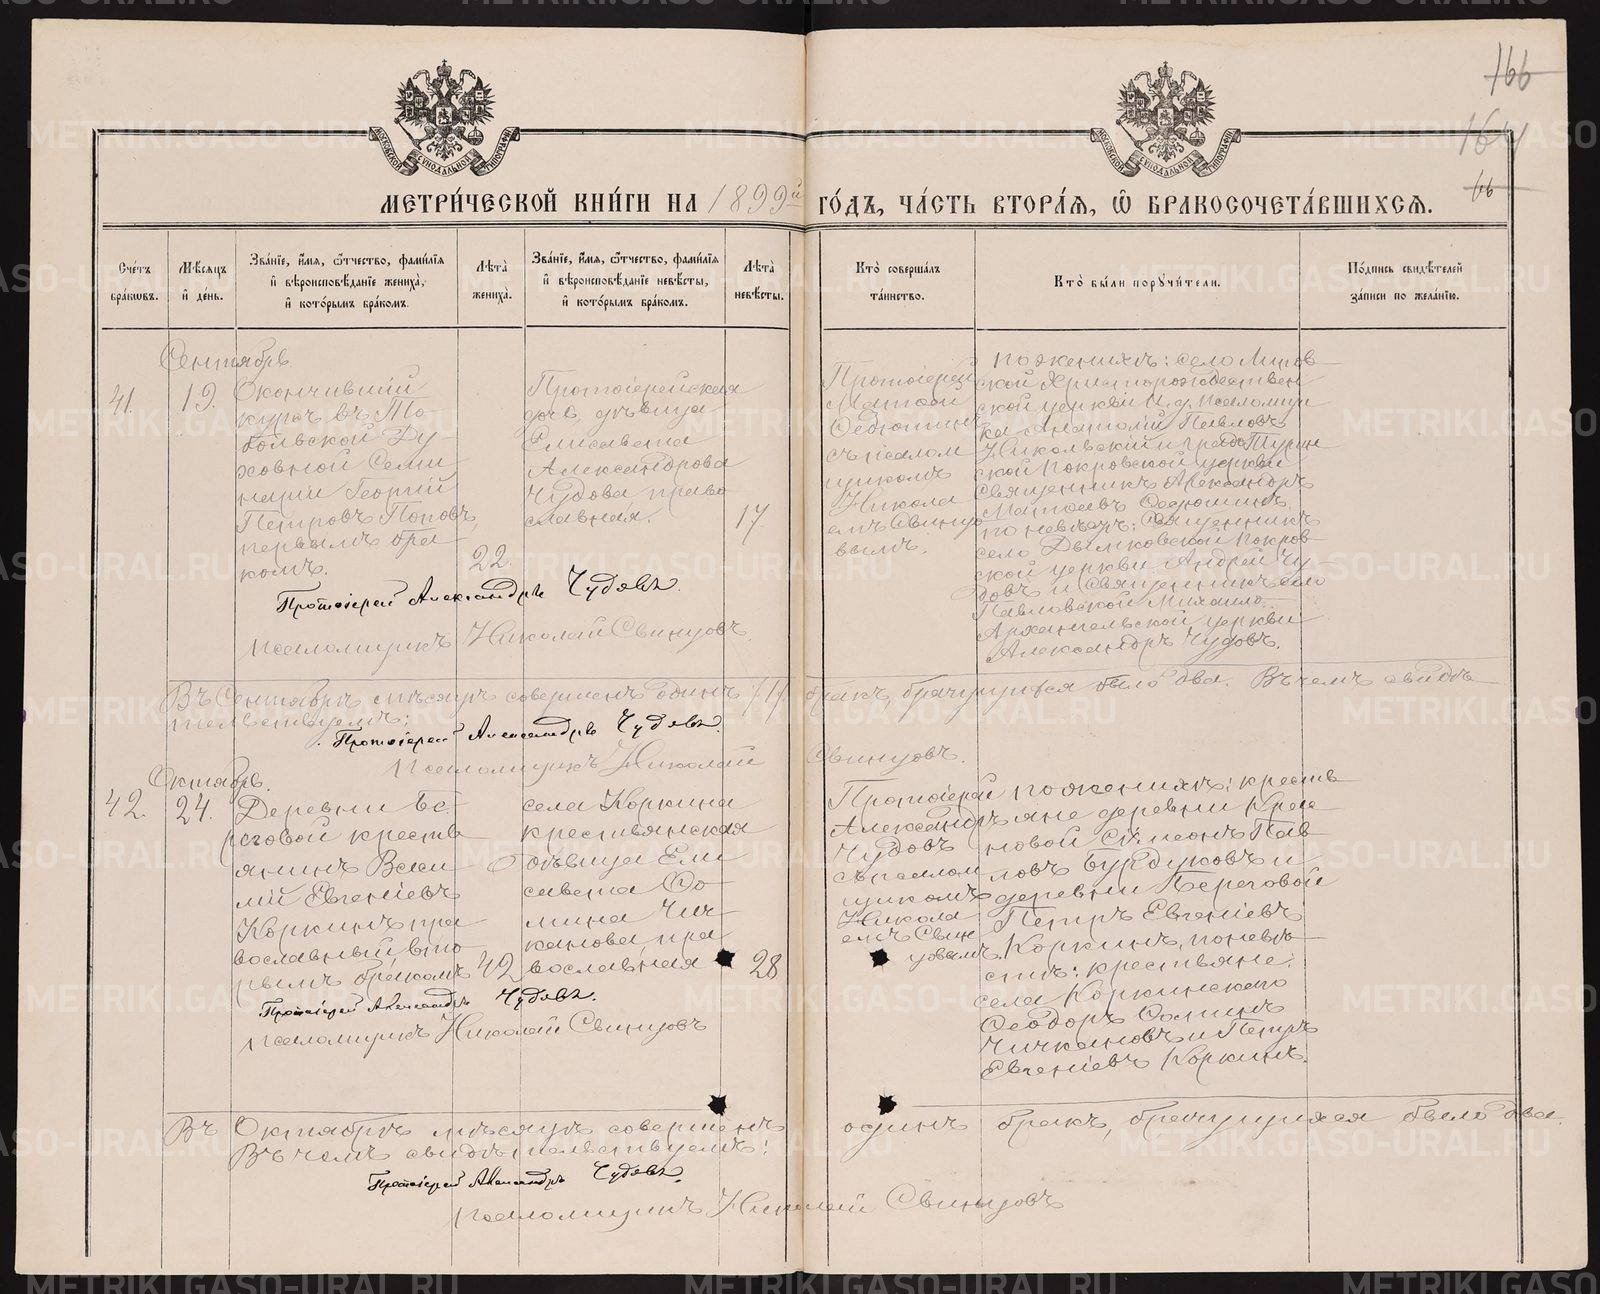 166
164
66
МОСКОВСКОЙ СѴНОДАЛЬНОЙ ТИПОГРАФІИ
МОСКОВСКОЙ СѴНОДАЛЬНОЙ ТИПОГРАФІИ
МЕТРИ́ЧЕСКОЙ КНИ́ГИ НА 1899й ГО́ДЪ, ЧА́СТЬ ВТОРА́Я, Ѽ БРАКОСОЧЕТА́ВШИХСЯ.
Сче́тъ
бра́кωвъ.
Мѣ́сяцъ
и҆ де́нь.
Зва́нїе, и҆́мя, ѻ҆́тчество, фами́лїя
и҆ вѣроисповѣ́данїе жениха̀,
и҆ кото́рымъ бра́комъ.
Лѣта̀
жениха̀.
Зва́нїе, и҆́мя, ѻ҆́тчество, фами́лїя
и҆ вѣроисповѣ́данїе невѣ́сты,
и҆ кото́рымъ бра́комъ.
Лѣта̀
невѣ́сты.
Кто̀ соверша́лъ
та́инство.
Кто̀ бы́ли порꙋчи́тели.
По́дпись свидѣ́телей
за́писи по жела́нїю.
Сентябрь
41.
19.
Окончившій
курсъ въ То-
больской Ду-
ховной Семи
наріи Георгій
Петровъ Поповъ,
первымъ бра
комъ.
22.
Протоіерейская
дочь, дѣвица
Елисавета
Александрова
Чудова, право
славная.
17
Протоіерей
Матѳей
Ѳедюшинъ
съ псалом
щикомъ
Никола
емъ Свинцо
вымъ.
по женихѣ: села Липов
ской Христорождествен
ской церкви И. д. псаломщи
ка Анатолій Павловъ
Никольскій и градо-Турин
ской Покровской церкви
Священникъ Александръ
Матѳеевъ Ѳедюшинъ.
по невѣстѣ: Священникъ
села Дымковской Покров
ской церкви Андрей Чу-
довъ и Священникъ села
Павловской Михаило-
Архангельской церкви
Александръ Чудовъ.
Протоіерей Александръ Чудовъ.
Псаломщикъ Николай Свинцовъ.
Въ Сентябрѣ мѣсяцѣ совершенъ одинъ /1/ бракъ, брачущихся было два. Въ чемъ свидѣ-
тельствуемъ:
Протоіерей Александръ Чудовъ.
Псаломщикъ Николай Свинцовъ.
Октябрь.
42.
24.
Деревни Бе-
реговой крестья
янинъ Васи
лій Евгеніевъ
Коркинъ, пра
вославный, вто
рымъ бракомъ
42
села Коркина
крестьянская
дѣвица Ели
савета Ѳо-
мина Чич-
канова, пра
вославная
28
Протоіерей
Александръ
Чудовъ
съ псалом
щикомъ
Никола
емъ Свин
цовымъ.
по женихѣ: кресть
яне деревни Кра
новой Сѵмеонъ Пав-
ловъ Бурдуковъ и
деревни Береговой
Петръ Евгеніевъ
Коркинъ, по невѣ-
стѣ: крестьяне:
села Коркинскаго
Ѳеодоръ Ѳоминъ
Чичкановъ и Петръ
Евгеніевъ Коркинъ.
Протоіерей Александръ Чудовъ.
Псаломщикъ Николай Свинцовъ
Въ Октябрѣ мѣсяцѣ совершенъ одинъ бракъ, брачущихся было два.
Въ чемъ свидѣтельствуемъ:
Протоіерей Александръ Чудовъ.
Псаломщикъ Николай Свинцовъ
METRIKI.GASO-URAL.RU